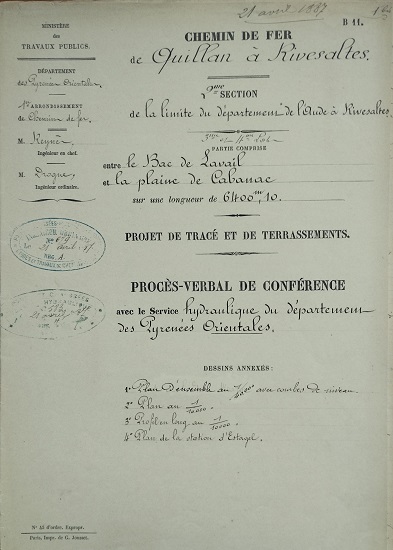 21 avril 1887
B 11.
MINISTÈRE
DES
TRAVAUX PUBLICS.
DÉPARTEMENT
des Pyrénées Orientales
1er ARRONDISSEMENT
de Chemins de fer.
M.
Ingénieur en chef.
M. Drogue,
Ingénieur ordinaire.
CHEMIN DE FER
de Quillan à Rivesaltes.
2me SECTION
de la limite du département de l'Aude à Rivesaltes
3me et 4me Lots
PARTIE COMPRISE
entre le Bac de Lavail
et la plaine de Cabanac
sur une longueur de 6400m,10.
PROJET DE TRACÉ ET DE TERRASSEMENTS.
PROCÈS-VERBAL DE CONFÉRENCE
avec le Service hydraulique du département
des Pyrénées Orientales.
DESSINS ANNEXÉS :
1° Plan d'ensemble au avec courbes de niveau
2° Plan au 1/10000.
3° Profil en long au 1/10000.
4° Plan de la station d'Estagel.
21 avril 87
REG. A
N° 45 d'ordre. Expropr.
Paris, Impr. de G. Jousset.